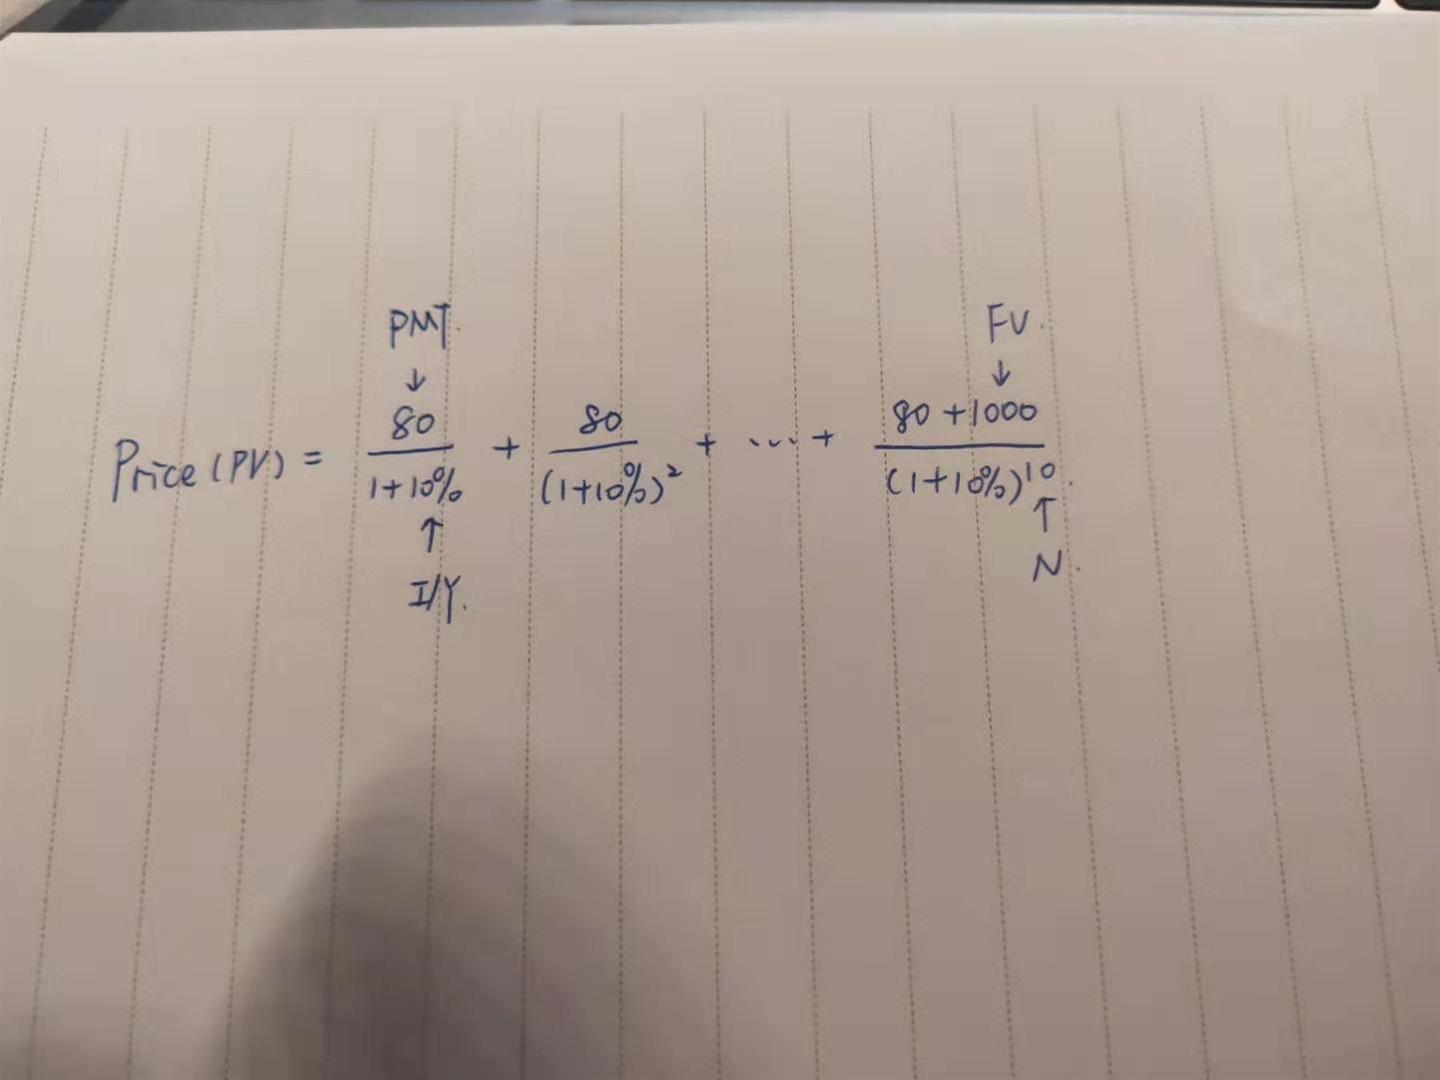 PMT. FV.
↓ ↓
Price (PV) = 80/(1+10%) + 80/(1+10%)² + ... + (80+1000)/(1+10%)¹⁰.
↑ ↑
I/Y. N.